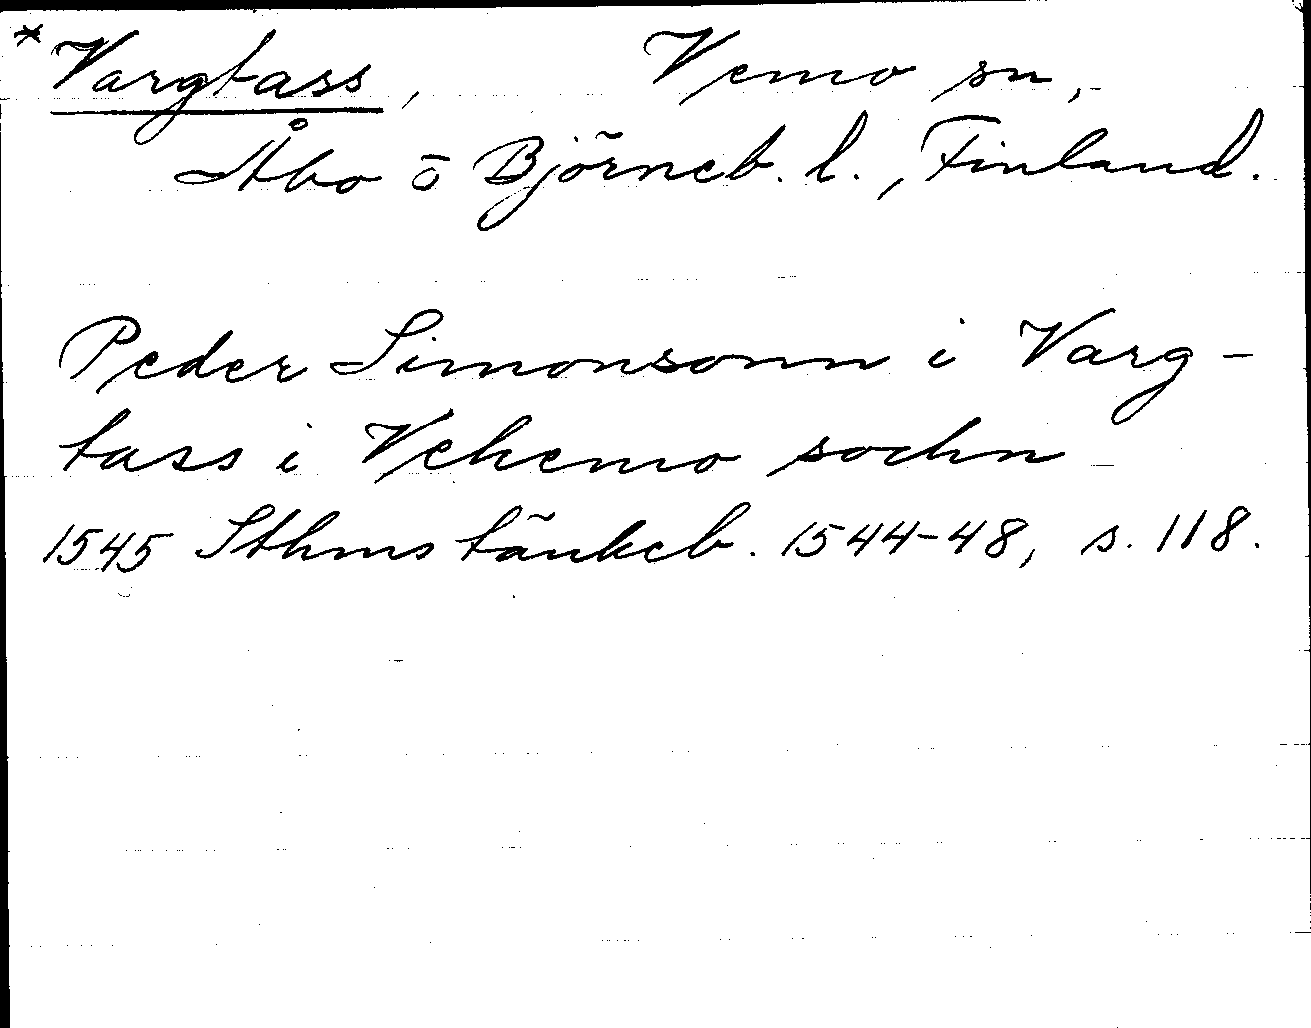 * Vargtass, Vemo sn,
Åbo o Björneb. l., Finland.
Peder Simonsonn i Varg-
tass i Vehemo sochn
1545 Sthms tänkeb. 1544-48, s. 118.